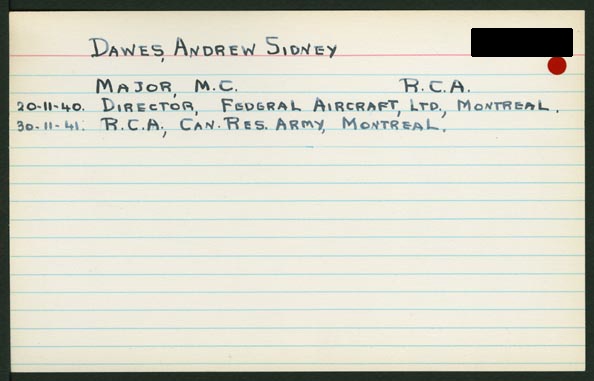 DAWES, ANDREW SIDNEY
MAJOR, M.C. R.C.A.
20-11-40. DIRECTOR, FEDERAL AIRCRAFT, LTD., MONTREAL.
30-11-41. R.C.A., CAN. RES. ARMY, MONTREAL.